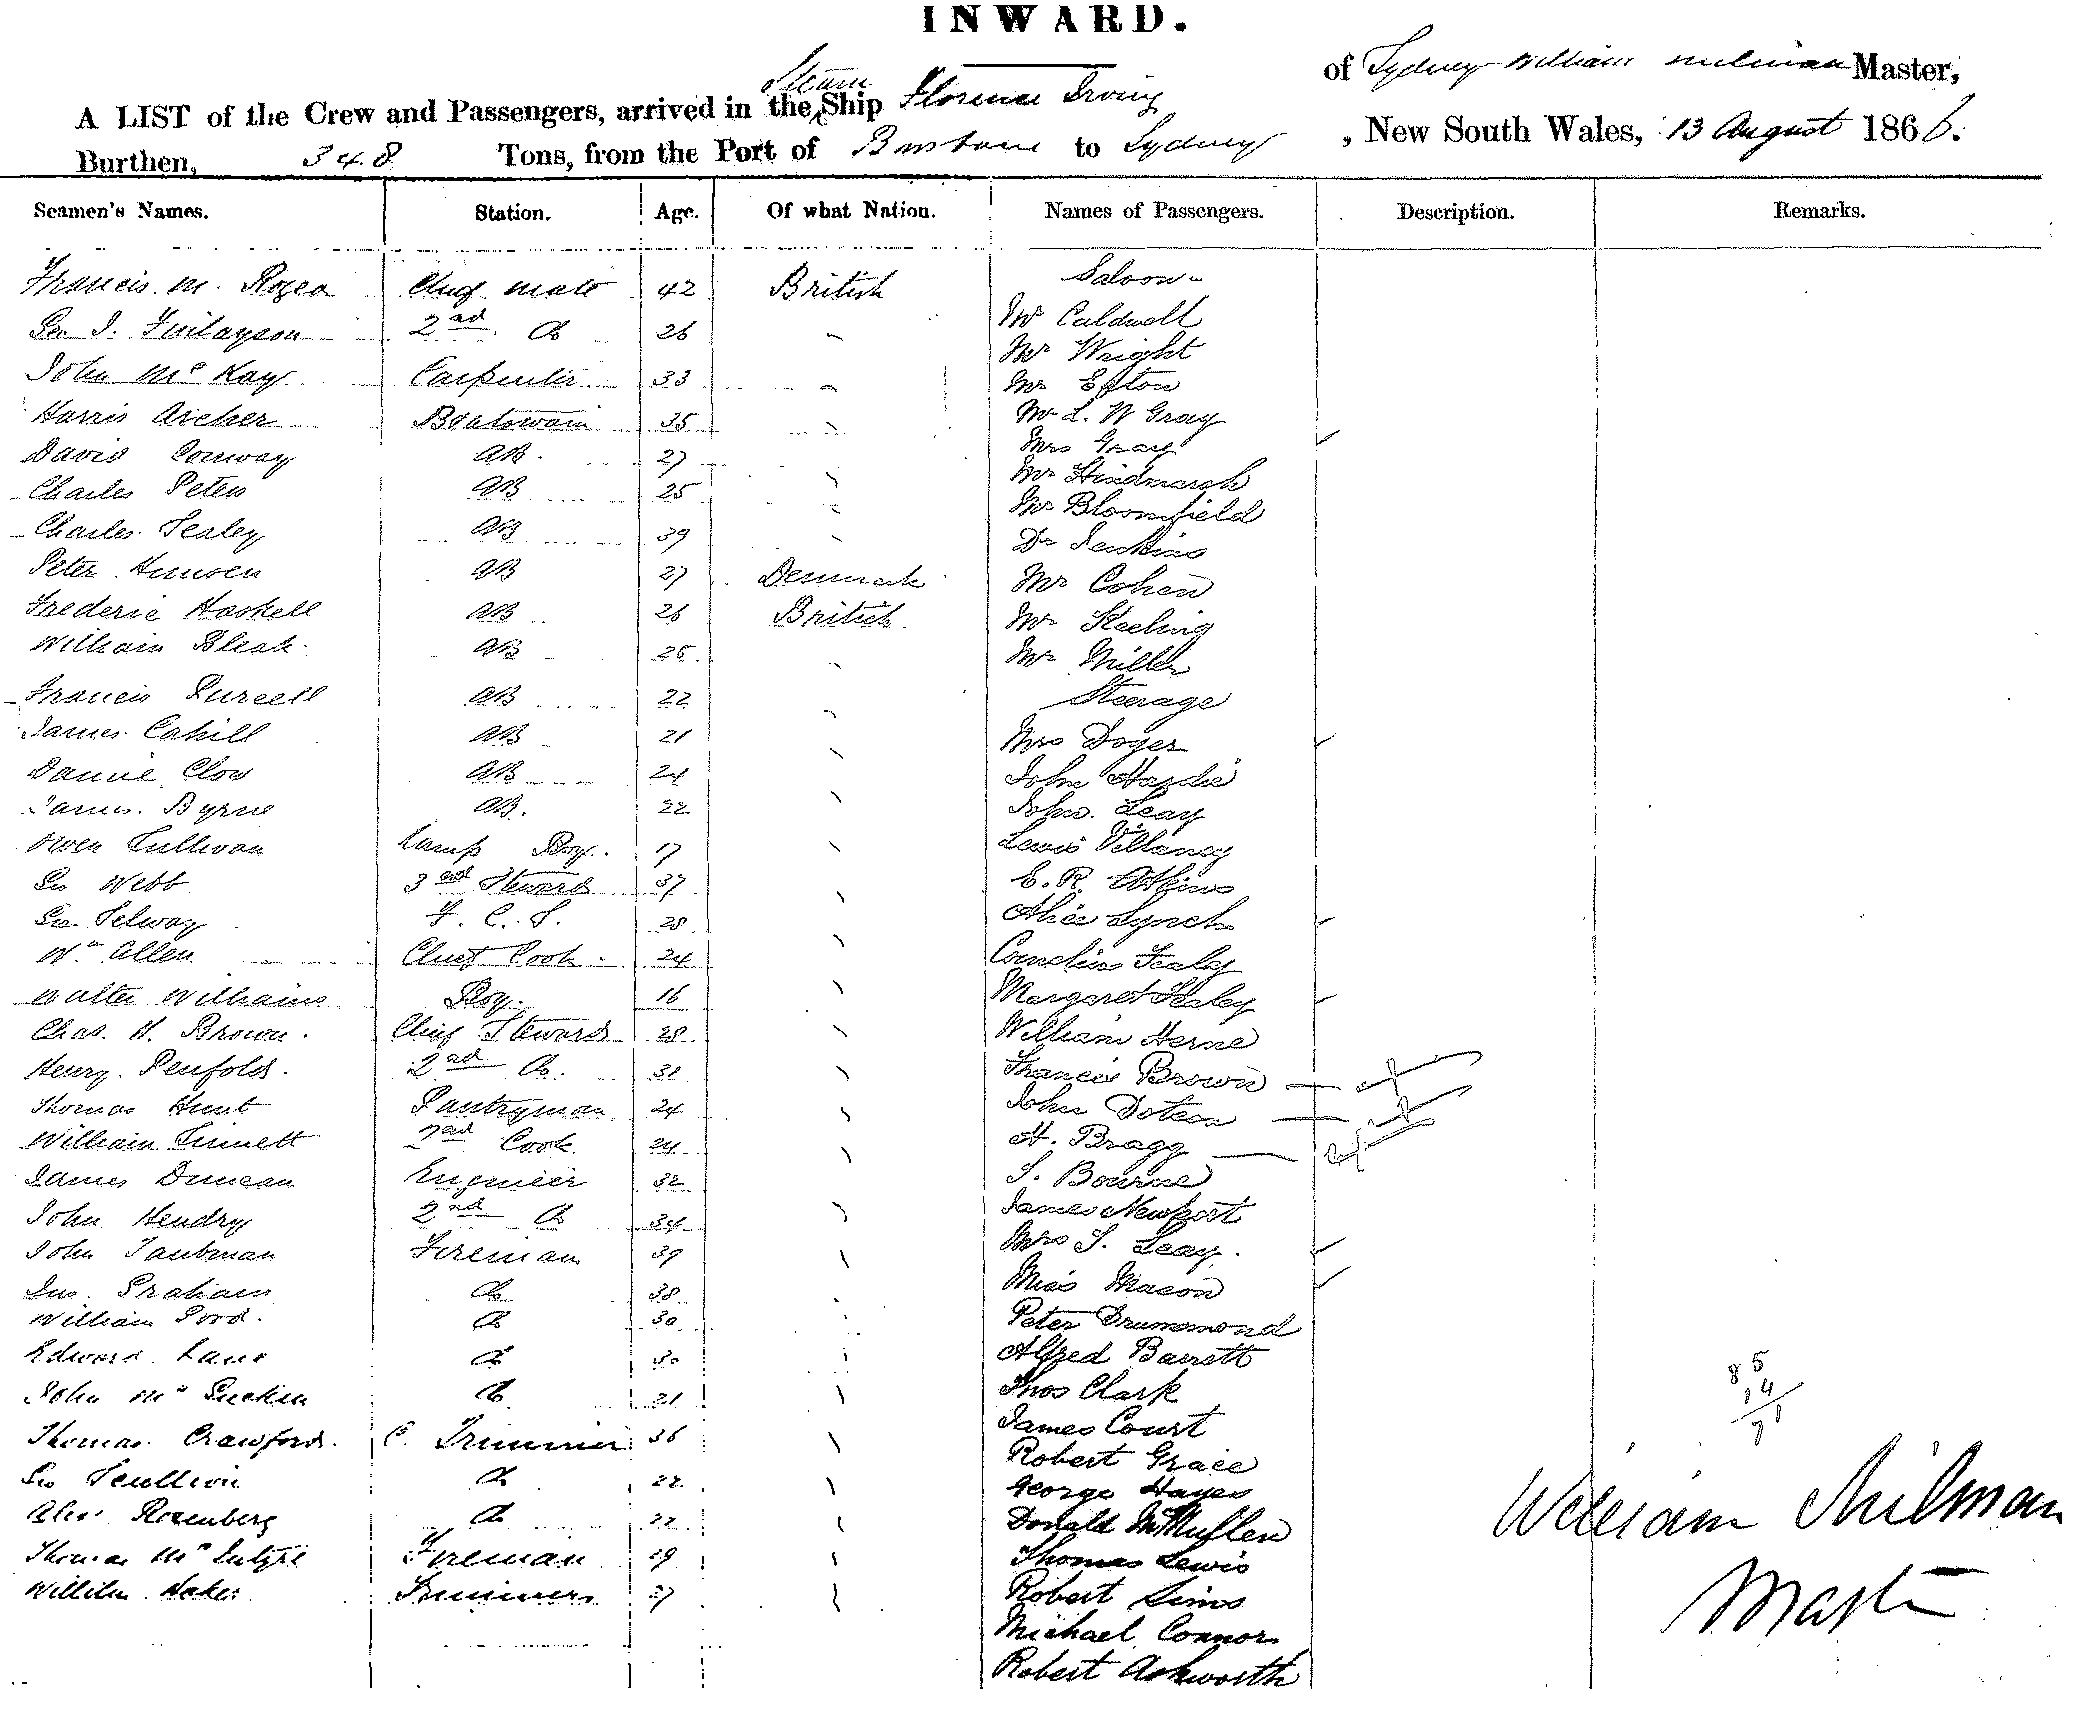 INWARD.
of Sydney William Milman Master,
A LIST of the Crew and Passengers, arrived in the Steam Ship Florence Irving
Burthen, 348 Tons, from the Port of Brisbane to Sydney , New South Wales, 13 August 1866.
Seamen's Names. Station. Age. Of what Nation. Names of Passengers. Description. Remarks.
Francis M. Rozea Chief Mate 42 British Saloon
Geo J. Finlayson 2nd Do 26 Mr Caldwell
Mr Wright
John McKay Carpenter 33 Mr Efton
Harris Archer Boatswain 35 Mr L. W Gray
David Conway AB. 27 Mrs Gray
Charles Peters AB 25 Mr Hindmarsh
Mr Bloomfield
Charles Sealey AB 39 Dr Jenkins
Peter Hansen AB 27 Denmark Mr Cohen
Frederic Haskell AB 26 British Mr Keeling
William Bleak AB 25 Mr Miller
Francis Purcell AB 22 Steerage
James Cahill AB 21 Mrs Doyer
Daniel Clow AB 24 John Hardie
James Byrne AB. 22 John Leay
Owen Sullivan Lamp Boy. 17 Lewis Villaney
Geo Webb 3rd Steward 37 E. R. Atkins
Geo Selway F. C. S. 28 Alice Lynch
Wm Allen Chief Cook 24 Cornelius Fealey
Walter Williams Boy. 16 Margaret Fealey
Chas. H. Brown. Chief Steward 28 William Herne
Henry Penfold. 2nd Do. 31 Francis Brown
Thomas Hunt Pantryman 24 John Dotson
William Sinnett 2nd Cook 24 H. Bragg
James Duncan Engineer 32 S. Bourne
John Hendry 2nd Do 34 James Newport
John Taubman Fireman 39 Mrs S. Leay.
Jno. Graham Do 38 Miss Macon
William Ford. Do 30 Peter Drummond
Edward Lane Do 30 Alfred Barrett
John McGuckin Do 21 Thos Clark
James Court
Thomas Crawford. C. Trimmer 36 Robert Grace
Geo Scullion Do 22 George Hayes
Alex Rosenberg Do 22 Donald McMullen
Thomas McIntyre Fireman 29 Thomas Lewis
William Baker Trimmers 27 Robert Sims
Michael Connor
Robert Ashworth
85
14
71
William Milman
Master